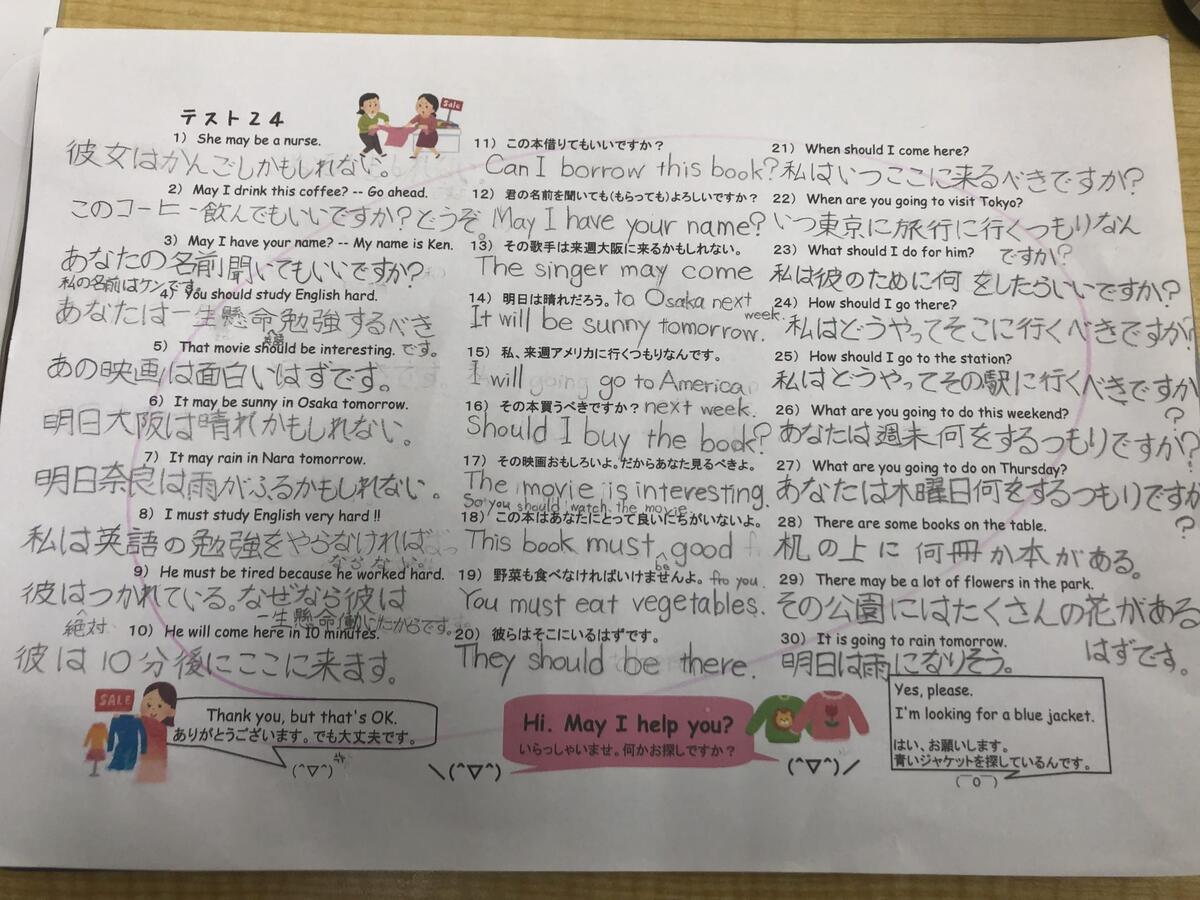 テスト24
Sale
1) She may be a nurse.
彼女はかんごしかもしれない。
2) May I drink this coffee? -- Go ahead.
このコーヒー飲んでもいいですか?どうぞ。
3) May I have your name? -- My name is Ken.
あなたの名前聞いてもいいですか?
私の名前はケンです。
4) You should study English hard.
あなたは一生懸命英語勉強するべき
です。
5) That movie should be interesting.
あの映画は面白いはずです。
6) It may be sunny in Osaka tomorrow.
明日大阪は晴れかもしれない。
7) It may rain in Nara tomorrow.
明日奈良は雨がふるかもしれない。
8) I must study English very hard !!
私は英語の勉強をやらなければ
ならない。
9) He must be tired because he worked hard.
彼はつかれている。なぜなら彼は
一生懸命働いたからです。
10) He will come here in 10 minutes.
絶対
彼は10分後にここに来ます。
11) この本借りてもいいですか?
Can I borrow this book?
12) 君の名前を聞いても(もらっても)よろしいですか?
May I have your name?
13) その歌手は来週大阪に来るかもしれない。
The singer may come
to Osaka next
week.
14) 明日は晴れだろう。
It will be sunny tomorrow.
15) 私、来週アメリカに行くつもりなんです。
I will go to American
next week.
16) その本買うべきですか?
Should I buy the book?
17) その映画おもしろいよ。だからあなた見るべきよ。
The movie is interesting.
So you should watch the movie.
18) この本はあなたにとって良いにちがいないよ。
This book must be good
fro you.
19) 野菜も食べなければいけませんよ。
You must eat vegetables.
20) 彼らはそこにいるはずです。
They should be there.
21) When should I come here?
私はいつここに来るべきですか?
22) When are you going to visit Tokyo?
いつ東京に旅行に行くつもりなん
ですか?
23) What should I do for him?
私は彼のために何をしたらいいですか?
24) How should I go there?
私はどうやってそこに行くべきですか?
25) How should I go to the station?
私はどうやってその駅に行くべきですか
?
26) What are you going to do this weekend?
あなたは週末何をするつもりですか?
27) What are you going to do on Thursday?
あなたは木曜日何をするつもりですか
?
28) There are some books on the table.
机の上に何冊か本がある。
29) There may be a lot of flowers in the park.
その公園にはたくさんの花がある
はずです。
30) It is going to rain tomorrow.
明日は雨になりそう。
SALE
Thank you, but that's OK.
ありがとうございます。でも大丈夫です。
(^▽^)
\(^▽^)
Hi. May I help you?
いらっしゃいませ。何かお探しですか?
(^▽^)/
Yes, please.
I'm looking for a blue jacket.
はい、お願いします。
青いジャケットを探しているんです。